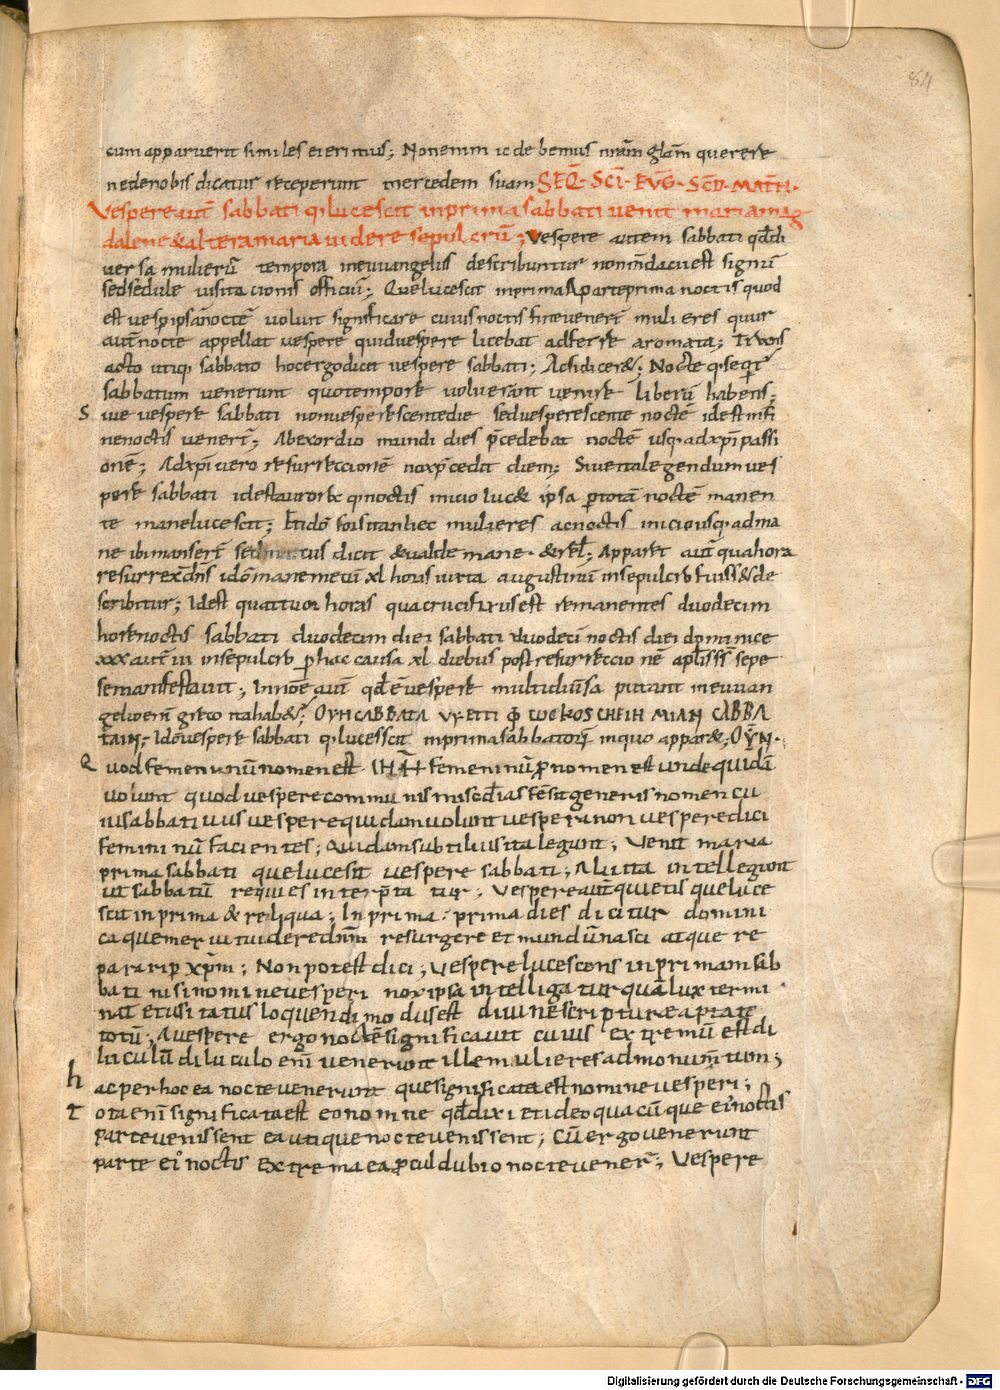 84
cum apparuerit similes ei erimus; Non enim ic debemus nr̄am glām querere
ne de nobis dicatur receperunt mercedem suam SEQ̄· SC̄I· EVḠ· SC̄D· MATH̄·
Vespere aut̄ sabbati q̄ lucescit in prima sabbati venit maria mag
dalene & altera maria videre sepulcrū; Vespere autem sabbati qđ di
versa mulierū tempora in euuangeliis describuntur non mendacii est signū
sed sedule visitacionis officiū; Que lucescit in prima A parte prima noctis quod
est vesp̄ ipsā noctē volunt significare cuius noctis fine venerī mulieres quur
aut̄ nocte appellat vespere qui duespere licebat adferre aromata; Ti vois
acto utiq; sabbato hoc ergo dicit vespere sabbati; Ac si dicer&; Nocte q̄ seq̄t
sabbatum venerunt quo tempore voluerant venire liberū habens;
S ive vespere sabbati non vesperescente die sed vesperescente noctē id est in fi
ne noctis venert̄; Ab exordio mundi dies p̄cedebat noctē usq; ad xp̄i passi
onē; Ad xp̄i vero resurreccionē nox p̄cedit diem; Sive tale gendum ves
pere sabbati id est aurore q̄ noctis inicio luc& ipsa p̄ totam noctē manen
te mane lucescit; Et idō forsitan hec mulieres ac noctis inicio usq; ad ma
ne ibi manserī sed marcus dicit & valde mane· & rel̄; Apparet aut̄ qua hora
resurrex̄ dn̄s idō mane metū xl horis iuxta augustinū in sepulcro fuiss& de
scribitur; Id est quattuor horas qua crucifixus est remanentes duodecim
hore noctis sabbati duodecim diei sabbati duodeci noctis diei dominice
xxx aut̄ iii in sepulcro p̄ hac causa xl diebus post resurreccionē apl̄is s̄ sepe
se manifestavit; In noe aut̄ qđ ē vespere multi diūsa putant in euuan
gelio enī greco ita hab&; ΟΥΗ CΑΒΒΑΤΑ
ΤΑΙΝ; Idō vespere sabbati q̄ lucesscit in prima sabbatorū in quo appar&; ΟΥΝ·
Q uod femeninū nomen est· femeninū p̄nomen est unde quidā
volunt quod vespere communis misced̄ias s̄ensit generis nomen cu
ius abbati uius vespere quidam volunt vespera non vespere dici
femininū facientes; Quidam subtilius ita legunt; Venit maria
prima sabbati que lucesit vespere sabbati; Alii ita intellegunt
ut sabbatū requies interp̄tatur; Vespere aut̄ quietis que luce
scit in prima & reliqua; In prima· prima dies dicitur domini
ca que meruit videre dn̄m resurgere et mundū nasci atque re
parari p̄ xp̄m; Non potest dici; Vespere lucescens in primam sab
bati nisi nomine vesperi nox ipsa intelligatur quā lux termi
nat et usitatus loquendi modus est divine scripture a parte
totū; A vespere ergo noctē significavit cuius extremū est di
luculū diluculo enī venerunt ille mulieres ad monum̄tum;
h ac per hoc ea nocte venerunt que significata est nomine vesperi;
T ota enī significata est eo nomine qđ dixi et ideo quacū que ei' noctis
parte venissent ea utique nocte venissent; Cū ergo venerunt
parte ei' noctis extrema ea p̄cul dubio nocte vener̄; Vespere
Digitalisierung gefördert durch die Deutsche Forschungsgemeinschaft - DFG